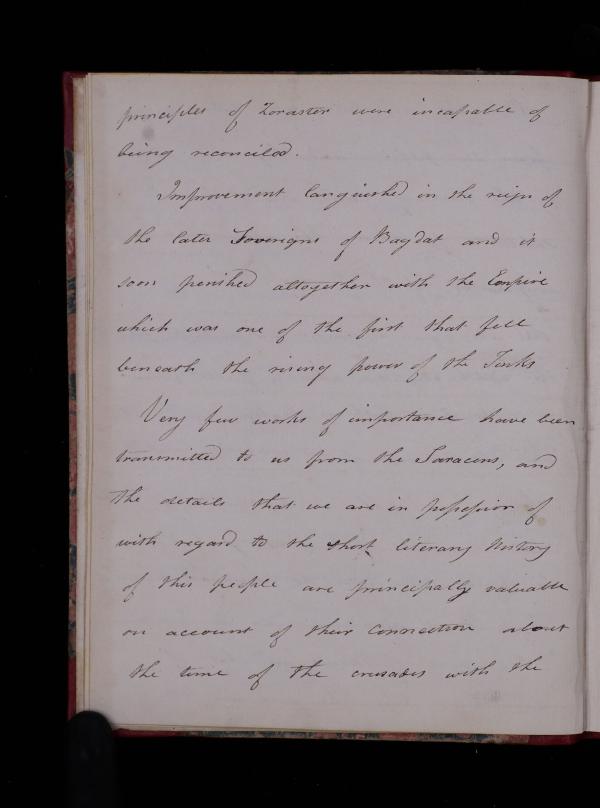 principles of Zoraster were incapable of
being reconciled.
Improvement languished in the reign of
the later Soverigns of Bagdat and it
soon perished altogether with the Empire
which was one of the first that fell
beneath the rising power of the Turks
Very few works of importance have been
transmitted to us from the Saracens, and
the details that we are in possession of
with regard to the short literary history
of this people are principally valuable
on account of their connection about
the time of the crusades with the